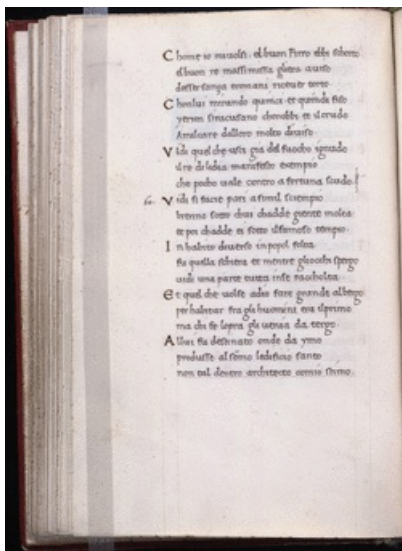 Chome io mi volsi. el buon Pirro ebbi schorto
el buon re massinissa gliera auiso
desser sanza romani riceuer torto
Chonlui mirando quinci et quindi fiso
yeron siracusano chonobbi et il crudo
Amilcare dalloro molto diuiso
Vidi quel che usci gia del fuocho ignudo
il re di lidia manifesto exempio
che pocho uale contro a fortuna scudo
Vidi si facie pari a simil sciempio
brenno sotto chui chadde giente molta
et poi chadde ei sotto ilfamoso tempio
In habito diuerso in popol folta
fu quella schiera et mentre gliocchi spergo
uidi una parte tutta inse raccholta
Et quel che uolse adio fare grande albergo
per habitar fra gli huomini era ilprimo
ma chi fe lopra gli ueniua da tergo
Alui fu destinato onde da ymo
produsse al somo ledificio santo
non tal dentro architecto comio stimo.